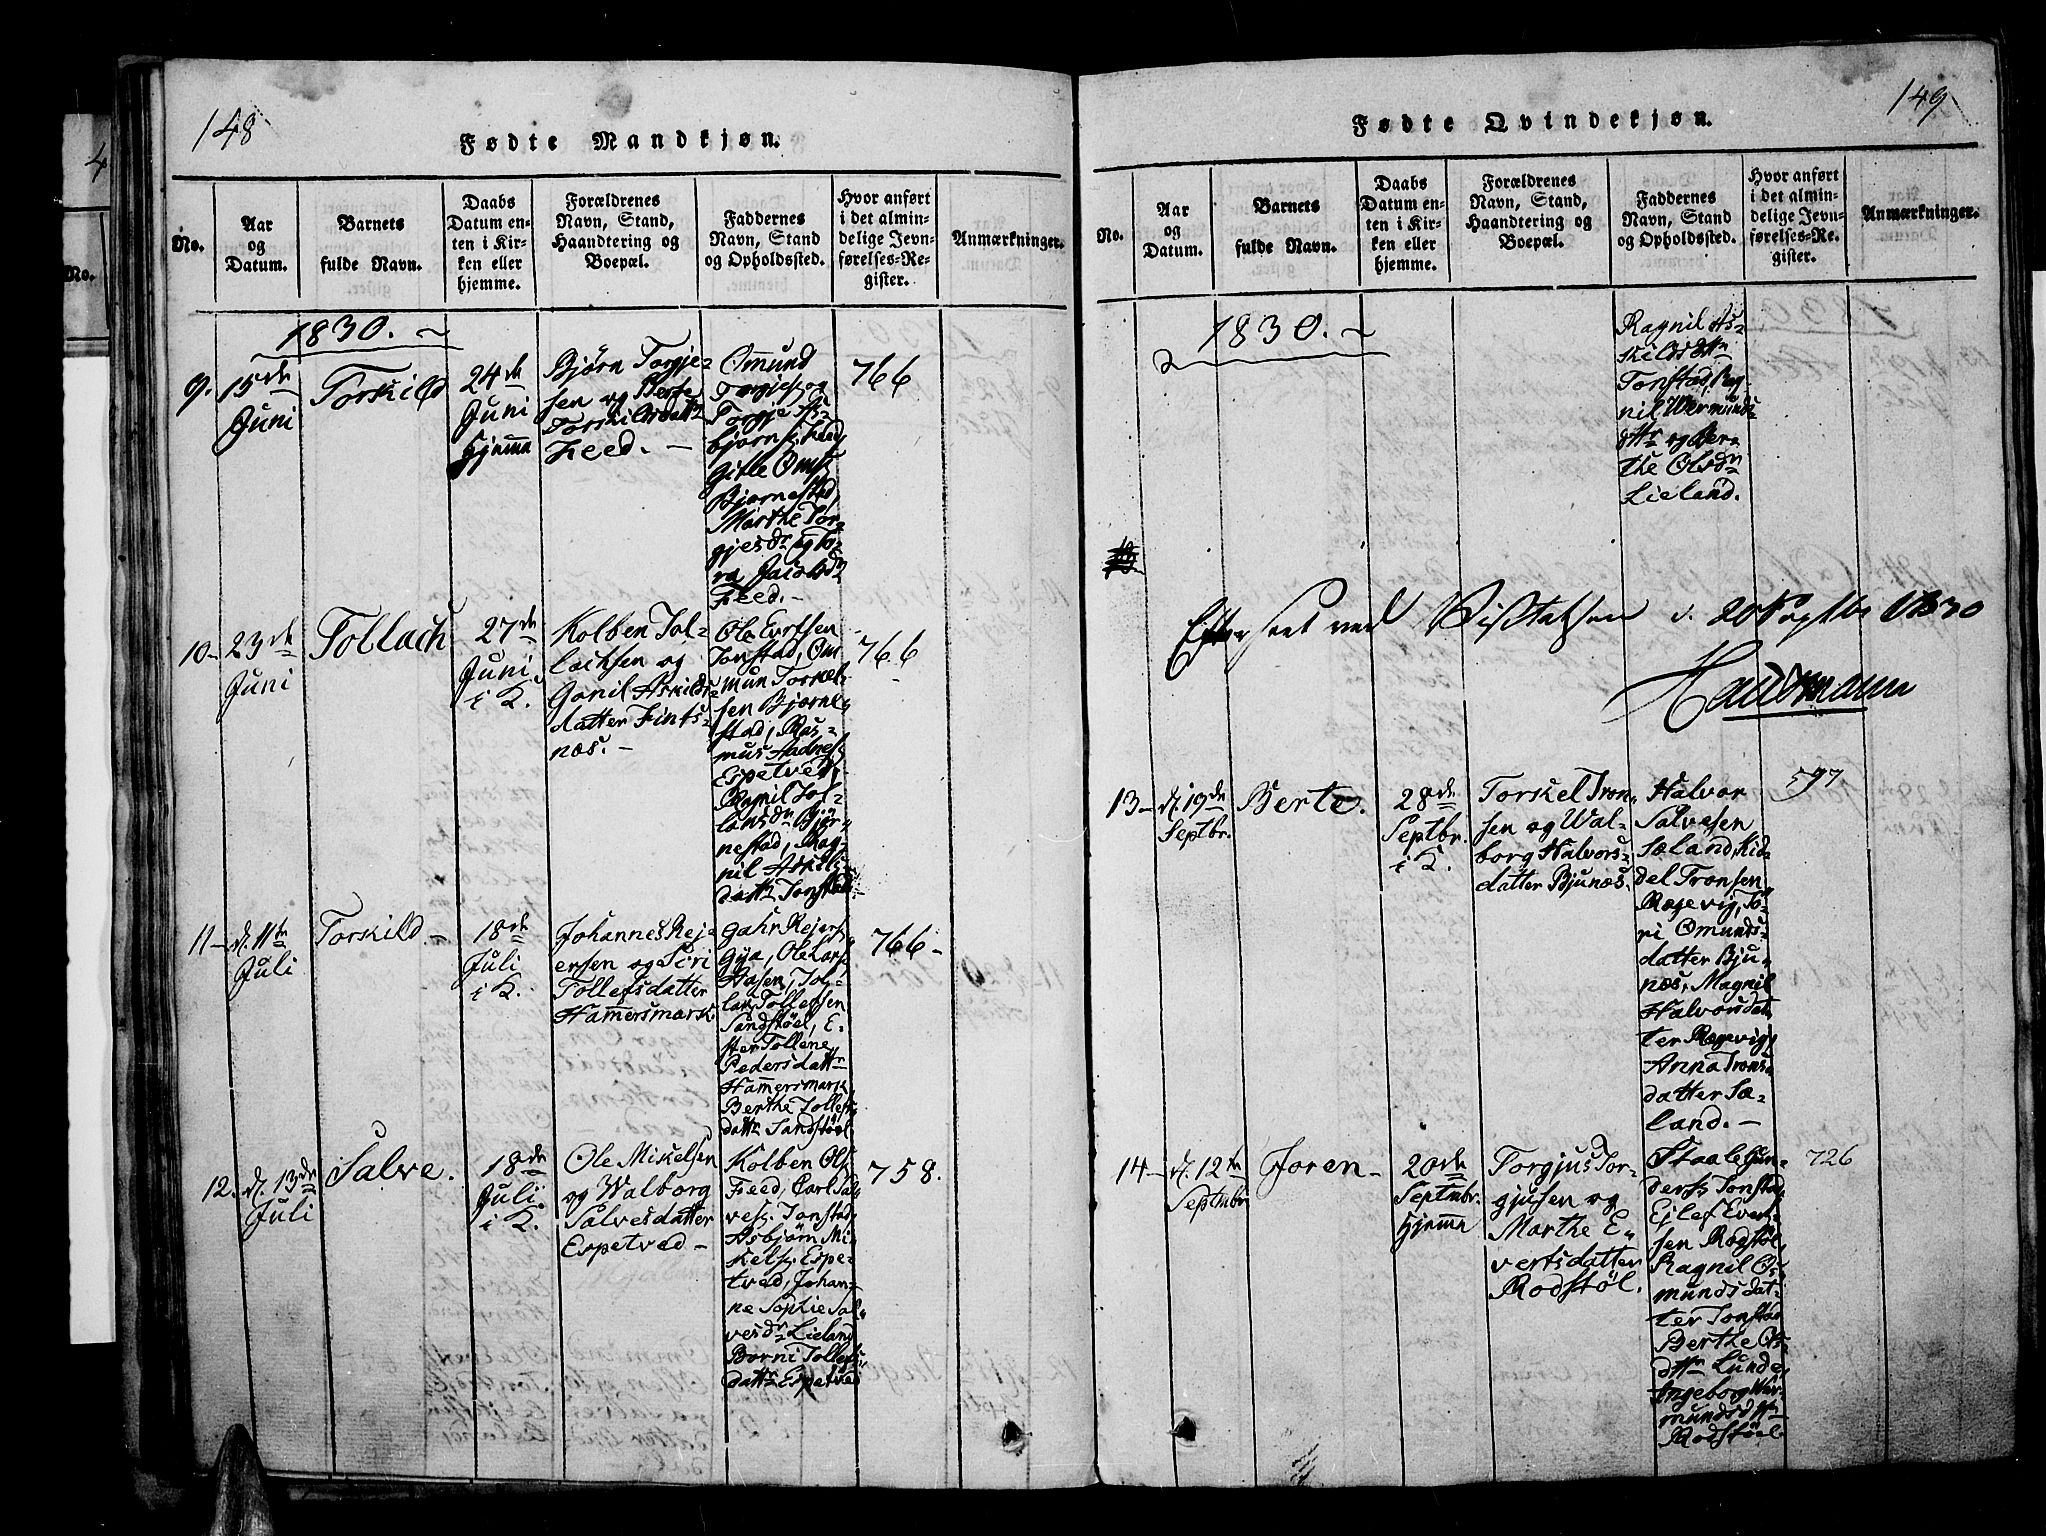 148
Fødte Mandkjøn.
No.
Aar
og
Datum.
Barnets
fulde Navn.
Daabs
Datum en-
ten i Kir-
ken eller
hjemme.
Forældrenes
Navn, Stand,
Haandtering og
Boepæl.
Faddernes
Navn, Stand
og Opholdssted.
Hvor anført
i det almin-
delige Jevn-
førelses-Re-
gister.
Anmærkninger.
1830.
9.
15de
Juni
Torskild
24de
Juni
hjemme
Bjørn Torgje-
sen og Berte
Torskildsdattr
Feed.
Omund
Torgjes. og
Torgje As-
bjørns. Feed,
Gitle Oms.
Bjørnestad,
Marthe Tor-
gjesdr. og To-
ra Jacobsdr
Feed.
766
10
23de
Juni
Tollach
27de
Juni
i K.
Kolben Tol-
lachsen og
Gonil Askilds-
datter Fints-
næs.
Ole Evrtsen
Tonstad, Om
mun Torkel-
sen Bjørne-
stad, Ras-
mus Aadnes.
Espetved,
Ragnil Tol-
laksdr. Bjør-
nestad, Rag-
nil Askilds-
dattr Tonstad
766
11
d. 11te
Juli
Torskild
18de
Juli
i K.
Johannes Rej-
ersen og Siri
Tollefsdatter
Hamersmark
Gahn Rejers.
Gya, Ole Lars.
Hasen, Tol-
lav Tollefsen
Sandstøel, E-
ster Tollene
Pedersdattr
Hamersmark
Berthe Tollefs-
dattr Sandstøel
766
12.
d. 13de
Juli
Salve.
18de
Juli
i K.
Ole Mikelsen
og Walborg
Salvesdatter
Espetved
Kolben Ols.
Feed, Carl Sal-
ves. Tonstad,
Asbjørn Mi-
kels. Espe-
tved, Johan-
ne Sophie Sal-
vesdr. Lieland
Borni Tollefs-
dattr Espetved
758.
149
Fødte Qvindekjøn.
No.
Aar
og
Datum.
Barnets
fulde Navn.
Daabs
Datum en-
ten i Kir-
ken eller
hjemme.
Forældrenes
Navn, Stand,
Haandtering og
Boepæl.
Faddernes
Navn, Stand
og Opholdssted.
Hvor anført
i det almin-
delige Jevn-
førelses-Re-
gister.
Anmærkninger.
1830.
Ragnil As-
kildsdttr
Tonstad, Rag-
nil Wermunds-
dttr og Ber-
the Olsdr
Lieland.
Efterseet ved Visitatsen d. 20 Septbr 1830
13
d. 19de
Septbr.
Berte.
28de
Septbr.
i K.
Torskel Tron-
sen og Wal-
borg Halvors-
datter Bjunæs.
Halvor
Salvesen
Sæland, Kid-
del Tronsen
Rægevig, To-
ri Omunds-
datter Bju-
næs, Magnil
Halvorsdat-
ter Rægevig,
Anna Trons-
datter Sæ-
land.
597
14
d. 12te
Septmbr
Joren
20de
Septmbr.
hjemme
Torgjus Tor-
gjusen og
Marthe E-
vertsdatter
Rodstøl.
Staale Gun-
ders. Tonstad,
Ejlef Evert-
sen Rodstøl,
Ragnil Os-
mundsdat-
ter Tonstad
Berthe Ols-
dttr Lunde,
Ingeborg Wer-
mundsdttr
Rodstøel
726